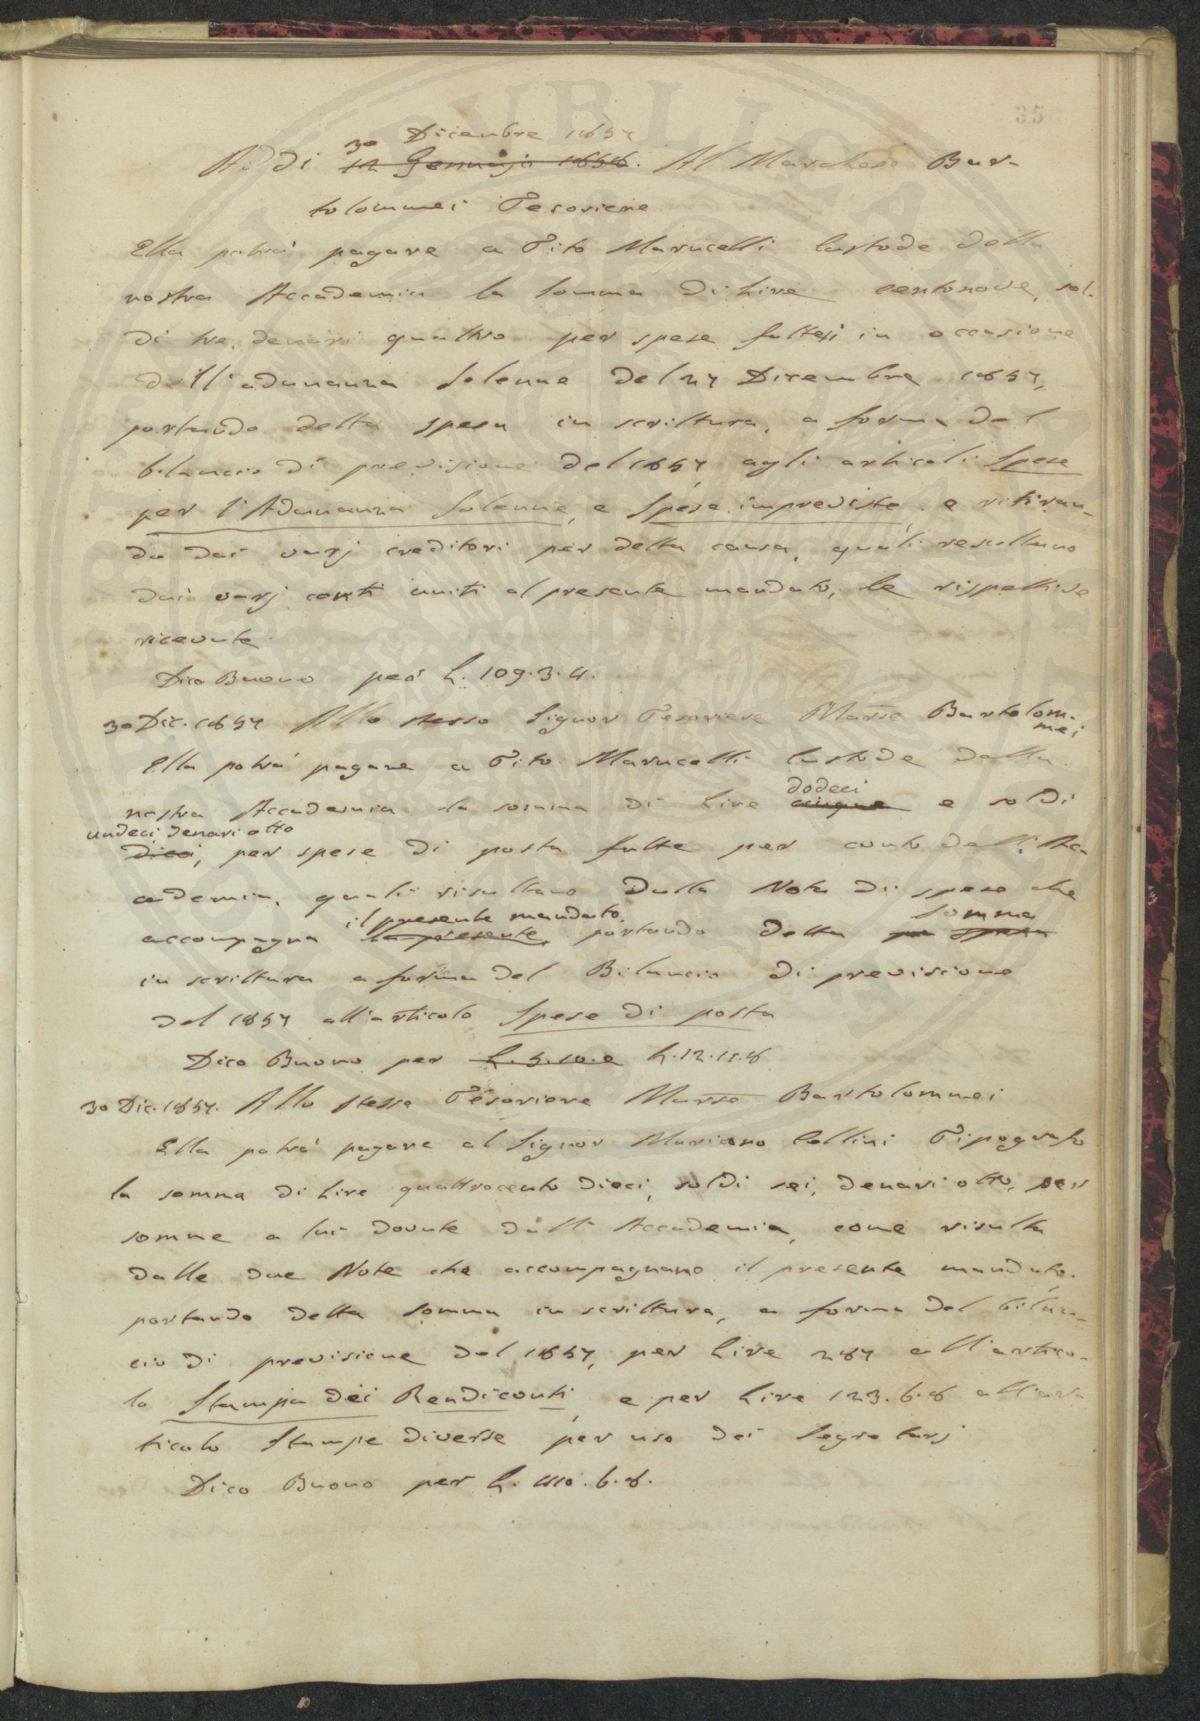 35
Dicembre 1857
30
Addì 12 Gennajo 1858. Al Marchese Bar-
tolommei Tesoriere
Ella potrà pagare a Tito Marucelli Custode della
nostra Accademia la somma di Lire centonove, sol-
di tre, denari quattro per spese fattesi in occasione
dell'adunanza solenne del 27 Dicembre 1857,
portando detta spesa in scrittura, a forma del
bilancio di previsione del 1857, agli articoli Spese
per l'Adunanza Solenne, e Spese impreviste, e ritiran-
do dai varj creditori per detta causa, quali resultano
dai varj conti uniti al presente mandato, le rispettive
ricevute.
Dico Buono per L. 109.3.4.
30 Dic. 1857 Allo stesso Signor Tesoriere Marse Bartolom-
mei
Ella potrà pagare a Tito Marucelli Custode della
dodeci
nostra Accademia la somma di Lire cinque e soldi
undeci denari otto
dieci, per spese di posta fatte per conto dell'Ac-
cademia, quali risultano dalla Nota di spese che
il presente mandato, somma
accompagna la presente, portando detta spesa
in scrittura a forma del Bilancio di previsione
del 1857 all'articolo Spese di posta
Dico Buono per L. 5.10.0 L. 12.11.8
30 Dic. 1857. Allo stesso Tesoriere Marse Bartolommei
Ella potrà pagare al Signor Mariano Cellini Tipografo
la somma di Lire quattrocento dieci, soldi sei, denari otto, per
somme a lui dovute dall'Accademia, come risulta
dalle due Note che accompagnano il presente mandato,
portando detta somma in scrittura, a forma del bilan-
cio di previsione del 1857, per Lire 287 all'artico-
lo Stampa dei Rendiconti, e per Lire 123.6.8 all'ar-
ticolo Stampe diverse per uso dei Segretarj
Dico Buono per L. 410.6.8.